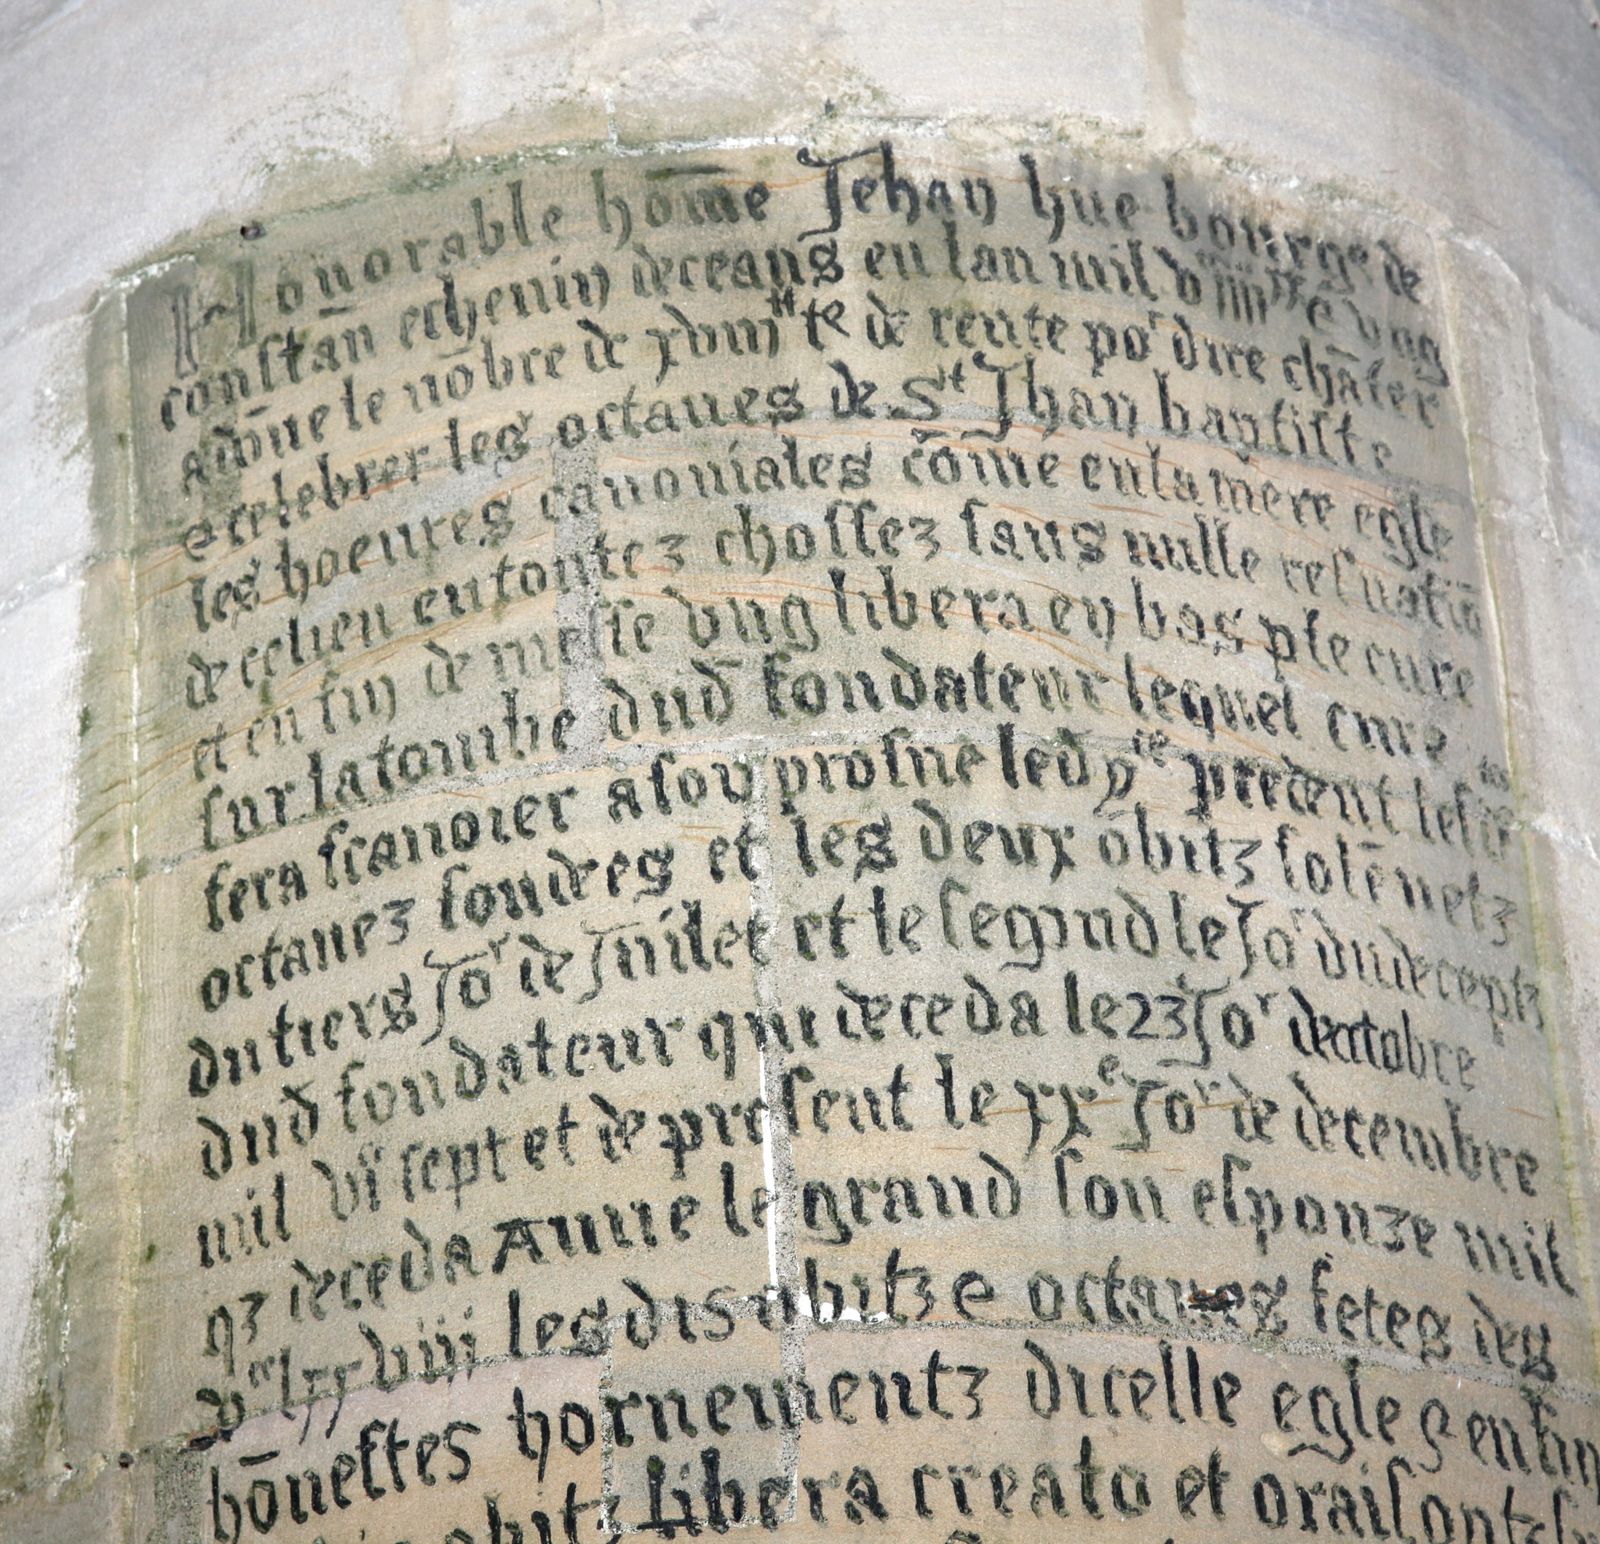 Honorable hōme Jehan hue bourgs de
constan echenin deceans en lan mil vᶜ iiiiˣˣ & vng
adōne le nōbre de xviiiᵗᵗ tz de rente poʳ dire chāter
& celebrer les octaues de Sᵗ Jhan baptiste
les hoeures canoniales cōme en la mere egle
de ce lieu en toutez chossez sans nulle resuatiō
et en fin de messe vng libera en bas p le cure
sur la tombe dud fondateur lequel cure
fera scauoier a son prosne led precedent lesd
octauez fondres et les deux obitz solēnetz
du tiers Joʳ de Juilet et le segund le Joʳ du deceptz
dud fondateur qui deceda le 23 Joʳ dectobre
mil vᶜ sept et de present le xxᵉ Joʳ de decembre
qz deceda Anne le grand son esponze mil
vᶜ lxx viii les dis obitz & octaues fetes des
hōnestes hornementz dicelle egle & en fin
obitz libera creato et oraisontz